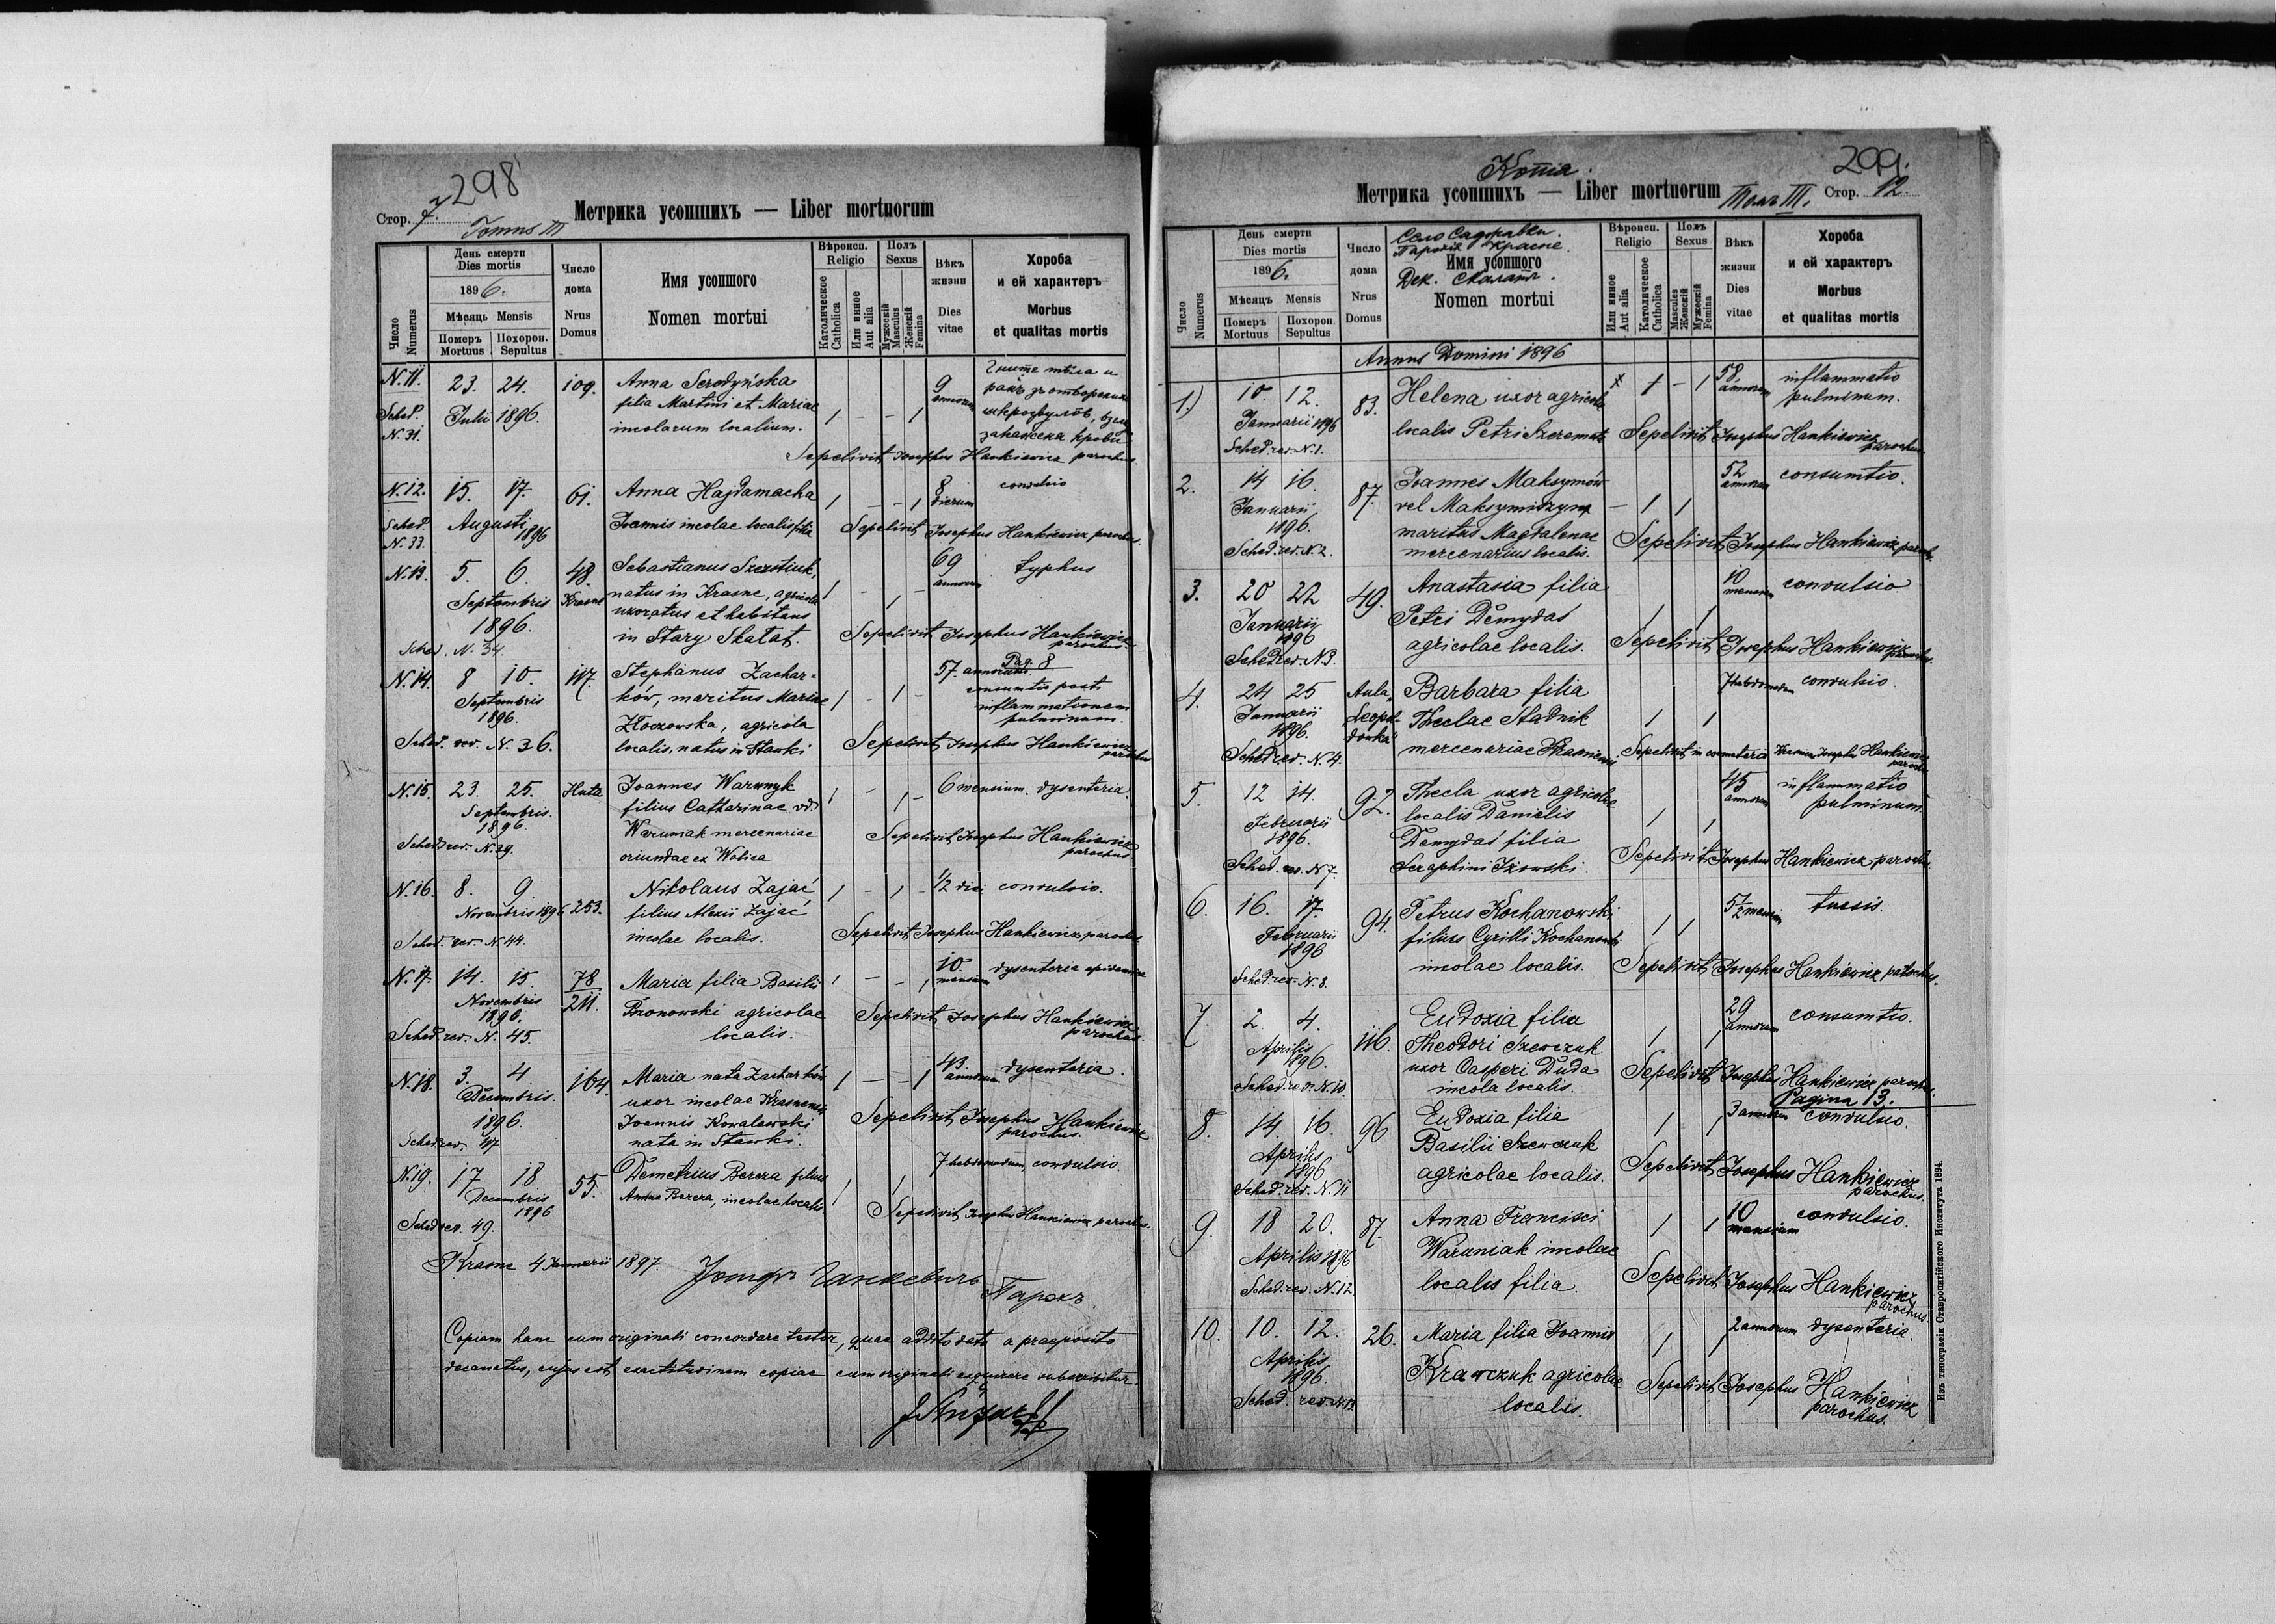 298
Стор. 7.
Tomus III
Метрика усопшихъ — Liber mortuorum
Число
Numerus
День смерти
Dies mortis
1896.
Мѣсяць Mensis
Померъ
Mortuus
Похорон.
Sepultus
Число
дома
Nrus
Domus
Имя усопшого
Nomen mortui
Вѣроисп.
Religio
Католическое
Catholica
Или инное
Aut alia
Полъ
Sexus
Мужескій
Masculus
Женскій
Femina
Вѣкъ
жизни
Dies
vitae
Хороба
и ей характеръ
Morbus
et qualitas mortis
N. 11. 23. 24. 109. Anna Serodyńska 9 annorum
filia Martini et Mariae
Sched. N. 31. Julii 1896.
incolarum localium.
Sepelivit Josephus Hankiewicz parochus.
N. 12. 15. 17. 61. Anna Hajdamacha 8 dierum
Sched. N. 33. Augusti 1896 Joannis incolae localis filia
Sepelivit Josephus Hankiewicz parochus.
N. 13. 5. 6. 48. Sebastianus 69 annorum typhus
Septembris Krasne natus in Krasne, agricola
1896. uxoratus et habitans
in Stary Skałat.
Sepelivit Josephus Hankiewicz parochus.
Sched. N. 34.
Pag. 8
N. 14. 8 10. 117. Stephanus Zachar-
57. annorum consumtio post
Septembris 1896. ków, maritus Mariae inflammationem
Złoczowska, agricola pulminum.
Sched. rev. N. 36. localis, natus in Stawki
Sepelivit Josephus Hankiewicz parochus
N. 15. 23. 25. Huta Joannes 6 mensium. dysenteria.
Septembris. 1896 filius Catharinae
mercenariae
Sched. rev. N. 39. oriundae ex Wolica
Sepelivit Josephus Hankiewicz parochus
N. 16. 8. 9. 253. Nikolaus Zając ½ diei convulsio.
Novembris 1896 filius Alexii Zając
Sched. rev. N. 44. incolae localis.
Sepelivit Josephus Hankiewicz parochus
N. 17. 14. 15. 78/211. Maria filia Basilii 10. mensium dysenteria epidemica
Novembris 1896. agricolae
Sched. rev. N. 45. localis.
Sepelivit Josephus Hankiewicz parochus
N. 18. 3. 4 164. Maria nata Zacharków 43. annorum dysenteria.
Decembris. uxor incolae
1896. Joannis Kowalewski
Sched rev. 47. nata in Stawki.
Sepelivit Josephus Hankiewicz parochus.
N. 19. 17 18 55. Demetrius Bereza filius 7 hebdomadum convulsio.
Decembris 1896 Annae Bereza, incolae localis
Sched rev. 49.
Sepelivit Josephus Hankiewicz parochus.
Krasne 4 Januarii 1897.
Copiam hanc cum originali concordare testor, quae addito dato a praeposito
decanatus, cujus est, exactitudinem copiae cum originali exquirere subscribitur.
299.
Копія.
Метрика усопшихъ — Liber mortuorum
Томъ III. Стор. 12.
Число
Numerus
День смерти
Dies mortis
1896.
Мѣсяць Mensis
Померъ
Mortuus
Похорон.
Sepultus
Число
дома
Nrus
Domus
Село Саджавки.
Парохія Красне.
Имя усопшого
Дек. Скалатъ.
Nomen mortui
Вѣроисп.
Religio
Или инное
Aut alia
Католическое
Catholica
Полъ
Sexus
Masculus
Женскій
Мужескій
Femina
Вѣкъ
жизни
Dies
vitae
Хороба
и ей характеръ
Morbus
et qualitas mortis
Annus Domini 1896
1.) 10. 12. 83. Helena uxor agricolae 58 annorum inflammatio
Januarii 1896 pulminum.
localis Petri Szeremeta
Sepelivit Josephus Hankiewicz parochus
Sched. rev. N. 1.
2. 14 16. 87. Joannes Maksymów 52 annorum consumtio.
Januarii vel
1896. maritus Magdalenae
Sched. rev. N. 2. mercenarius localis.
Sepelivit Josephus Hankiewicz paroch.
3. 20 22 49. Anastasia filia 10 mensium convulsio
Januarii 1896 Petri Demydas
Sched rev. N 3. agricolae localis.
Sepelivit Josephus Hankiewicz parochus.
4. 24 25 Aula „Leopoldówka" Barbara filia 7 hebdomadum convulsio.
Januarii 1896. Theclae Stadnik
Sched. rev. N. 4. mercenariae
Sepelivit in coemeterio Krasne Josephus Hankiewicz parochus
5. 12 14. 92. Thecla uxor agricolae 45 annorum inflammatio
Februarii 1896. localis Danielis pulminum.
Demydas filia
Sched. rev. N 7. Seraphini
Sepelivit Josephus Hankiewicz parochus.
6. 16. 17. 94. Petrus Kochanowski 5½ mensium tussis.
Februarii 1896 filius Cyrilli Kochanowski
Sched rev. N. 8. incolae localis.
Sepelivit Josephus Hankiewicz parochus.
7 2. 4. 116. Eudoxia filia 29 annorum consumtio.
Aprilis 1896. Theodori Szewczuk
uxor Casperi Duda
Sched. rev. N. 10. incola localis.
Sepelivit Josephus Hankiewicz parochus.
Pagina 13.
8. 14 16. 96 Eudoxia filia 3 annorum convulsio.
Aprilis 1896 Basilii Szewczuk
Sched. rev. N. 11 agricolae localis.
Sepelivit Josephus Hankiewicz parochus.
9. 18 20. 87. Anna Francisci 10 mensium convulsio.
Aprilis 1896 Waruniak incolae
Sched. rev. N. 12. localis filia.
Sepelivit Josephus Hankiewicz parochus.
10. 10. 12. 26. Maria filia Joannis 2 annorum dysenteria.
Aprilis 1896. Krawczuk agricolae
Sched. rev. N. 13. localis.
Sepelivit Josephus Hankiewicz parochus.
Изъ типографіи Ставропигійского Института 1894.